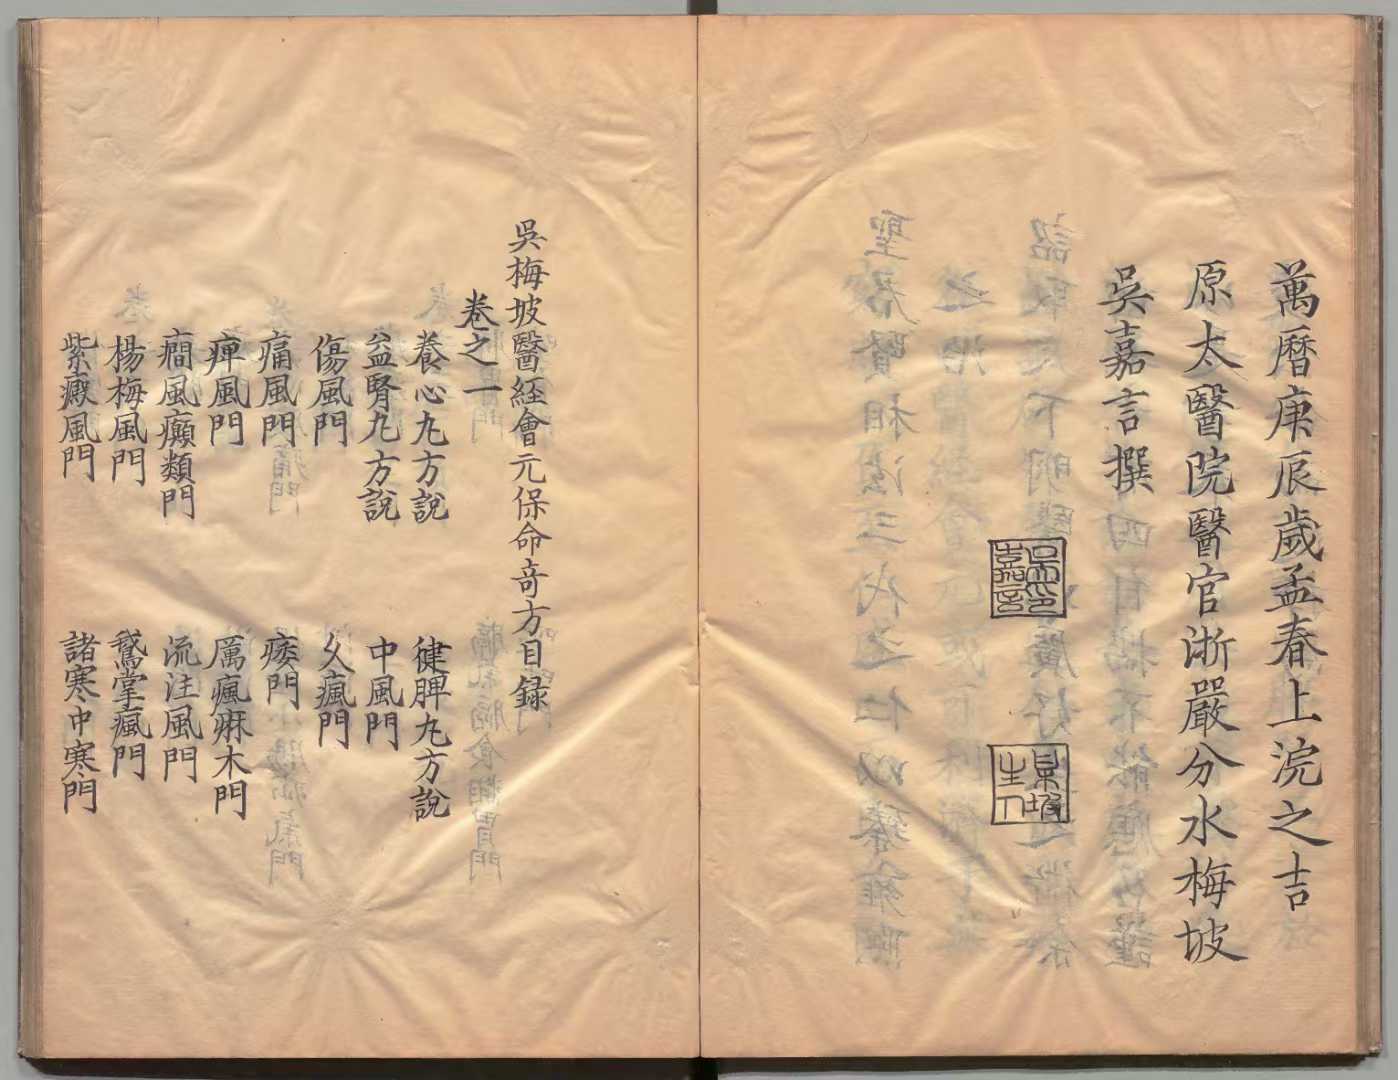 萬曆庚辰歲孟春上浣之吉
原太醫院醫官浙嚴分水梅坡
吳嘉言撰
吳梅坡醫経會元保命奇方目録
卷之一
養心丸方說
健脾丸方說
益腎丸方說
中風門
傷風門
久瘋門
痛風門
痿門
痺風門
厲瘋痳木門
癎風癲類門
流注風門
楊梅風門
鵞掌瘋門
紫癜風門
諸寒中寒門